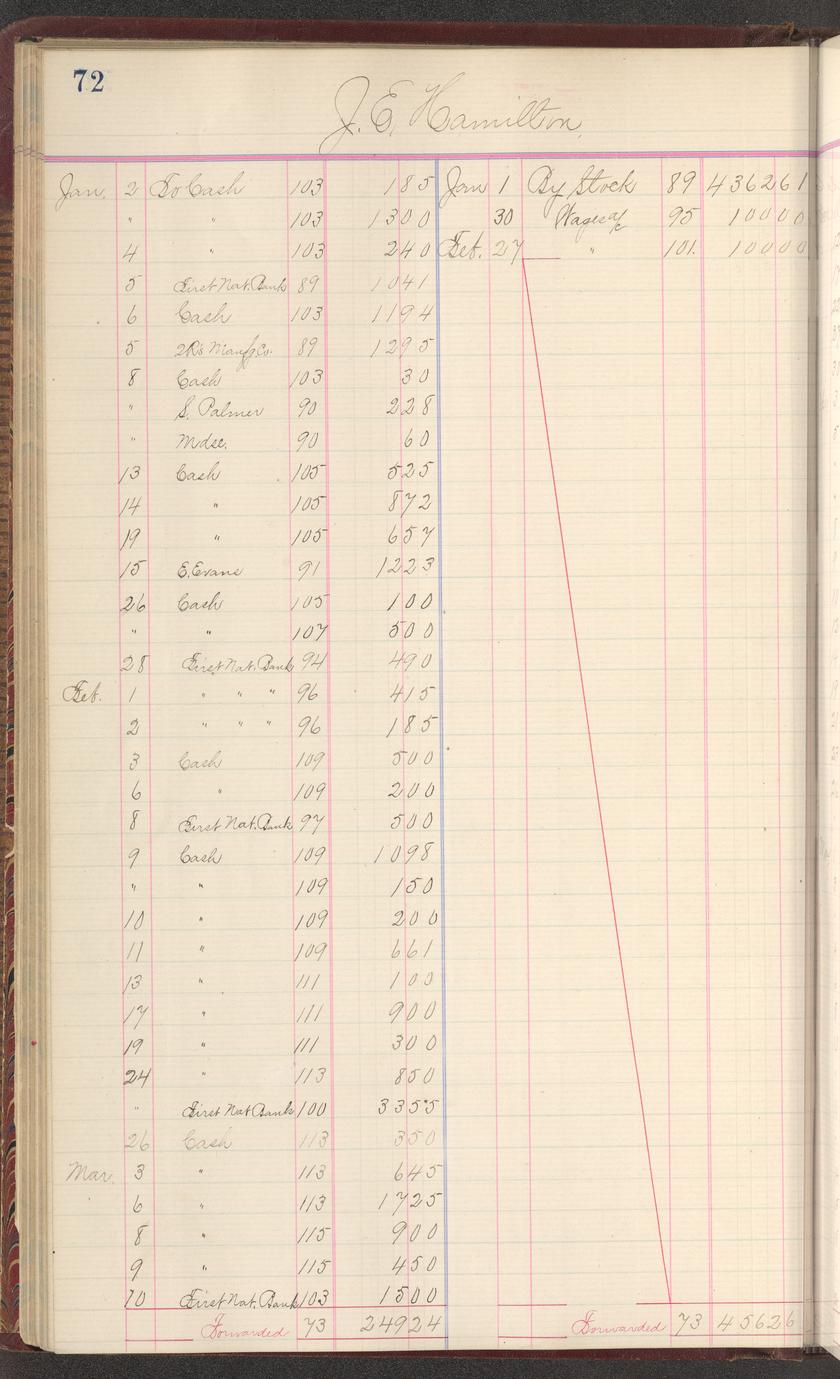 72
J. E. Hamilton.
Jan. 2 To Cash 103 1 85 Jan 1 By Stock 89 4362 61
" " 103 13 00 30 Wages a/c 95 100 00
4 " 103 2 40 Feb. 27 " 101. 100 00
5 First Nat. Bank 89 10 41
6 Cash 103 11 94
5 2R's Manfg Co. 89 12 95
8 Cash 103 30
" S. Palmer 90 2 28
" Mdse. 90 60
13 Cash 105 5 25
14 " 105 8 72
19 " 105 6 57
15 E. Evans 91 12 23
26 Cash 105 1 00
" " 107 5 00
28 First Nat. Bank 94 4 90
Feb. 1 " " " 96 4 15
2 " " " 96 1 85
3 Cash 109 5 00
6 " 109 2 00
8 First Nat. Bank 97 5 00
9 Cash 109 10 98
" " 109 1 50
10 " 109 2 00
11 " 109 6 61
13 " 111 1 00
17 " 111 9 00
19 " 111 3 00
24 " 113 8 50
" First Nat Bank 100 33 55
26 Cash 113 3 50
Mar. 3 " 113 6 45
6 " 113 17 25
8 " 115 9 00
9 " 115 4 50
10 First Nat. Bank 103 15 00
Forwarded 73 249 24 Forwarded 73 4562 6